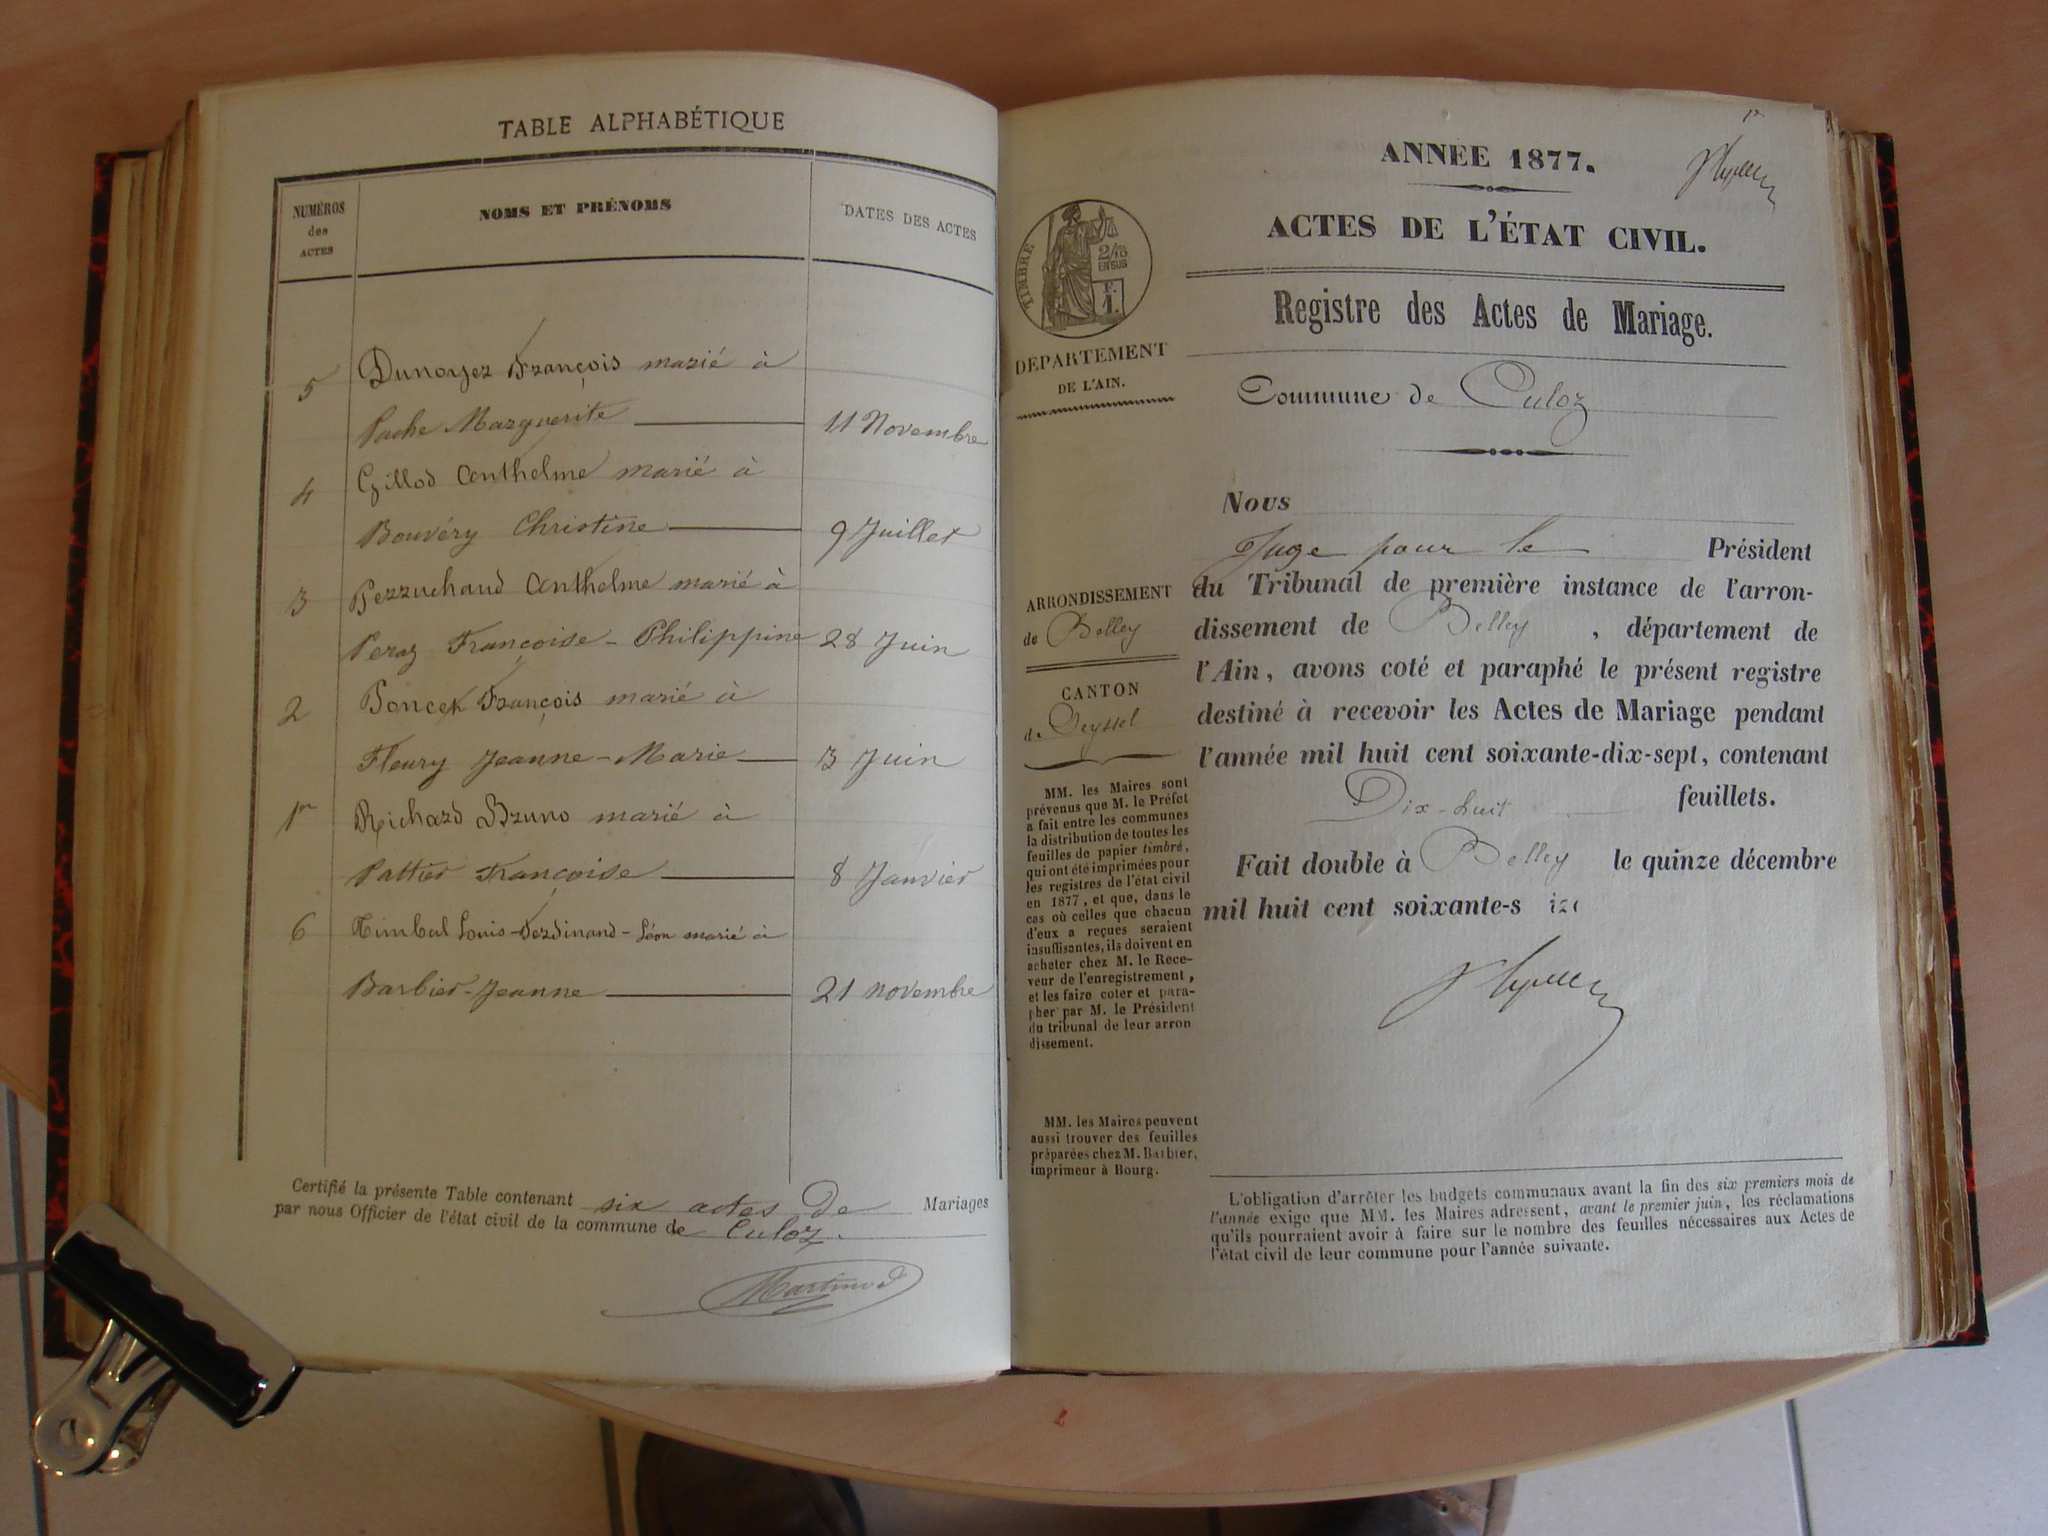 TABLE ALPHABÉTIQUE
NUMÉROS des ACTES
NOMS ET PRÉNOMS
DATES DES ACTES
5 Dunoyer François marié à
Pache Marguerite 11 Novembre
4 Gillod Anthelme marié à
Bouvéry Christine 9 Juillet
3 Pezzuchaud Anthelme marié à
Peraz Françoise-Philippine 28 Juin
2 Poncet François marié à
Fleury Jeanne-Marie 13 Juin
1r Richard Bruno marié à
Pattier Françoise 8 Janvier
6 Timbal Louis-Ferdinand-Léon marié à
Barbier Jeanne 21 novembre
Certifié la présente Table contenant six actes de Mariages
par nous Officier de l'état civil de la commune de Culoz.
Martinod
1r
ANNÉE 1877.
ACTES DE L'ÉTAT CIVIL.
TIMBRE
2/10
EN SUS
F.
1.
Registre des Actes de Mariage.
DÉPARTEMENT
DE L'AIN.
Commune de Culoz
ARRONDISSEMENT
de Belley
CANTON
de Seyssel
MM. les Maires sont
prévenus que M. le Préfet
a fait entre les communes
la distribution de toutes les
feuilles de papier timbré,
qui ont été imprimées pour
les registres de l'état civil
en 1877, et que, dans le
cas où celles que chacun
d'eux a reçues seraient
insuffisantes, ils doivent en
acheter chez M. le Rece-
veur de l'enregistrement,
et les faire coter et para-
pher par M. le Président
du tribunal de leur arron
dissement.
MM. les Maires peuvent
aussi trouver des feuilles
préparées chez M. Barbier,
imprimeur à Bourg.
Nous
Juge pour le Président
du Tribunal de première instance de l'arron-
dissement de Belley, département de
l'Ain, avons coté et paraphé le présent registre
destiné à recevoir les Actes de Mariage pendant
l'année mil huit cent soixante-dix-sept, contenant
Dix-huit feuillets.
Fait double à Belley le quinze décembre
mil huit cent soixante-s
L'obligation d'arrêter les budgets communaux avant la fin des six premiers mois de
l'année exige que MM. les Maires adressent, avant le premier juin, les réclamations
qu'ils pourraient avoir à faire sur le nombre des feuilles nécessaires aux Actes de
l'état civil de leur commune pour l'année suivante.